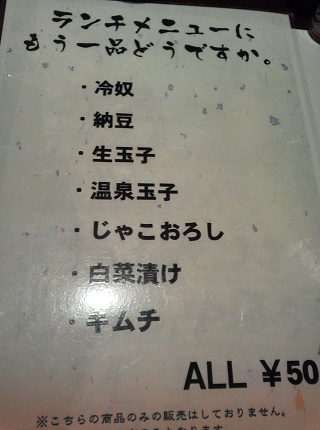 ランチメニューに
もう一品どうですか。
・冷奴
・納豆
・生玉子
・温泉玉子
・じゃこおろし
・白菜漬け
・キムチ
ALL ¥50
※こちらの商品のみの販売はしておりません。